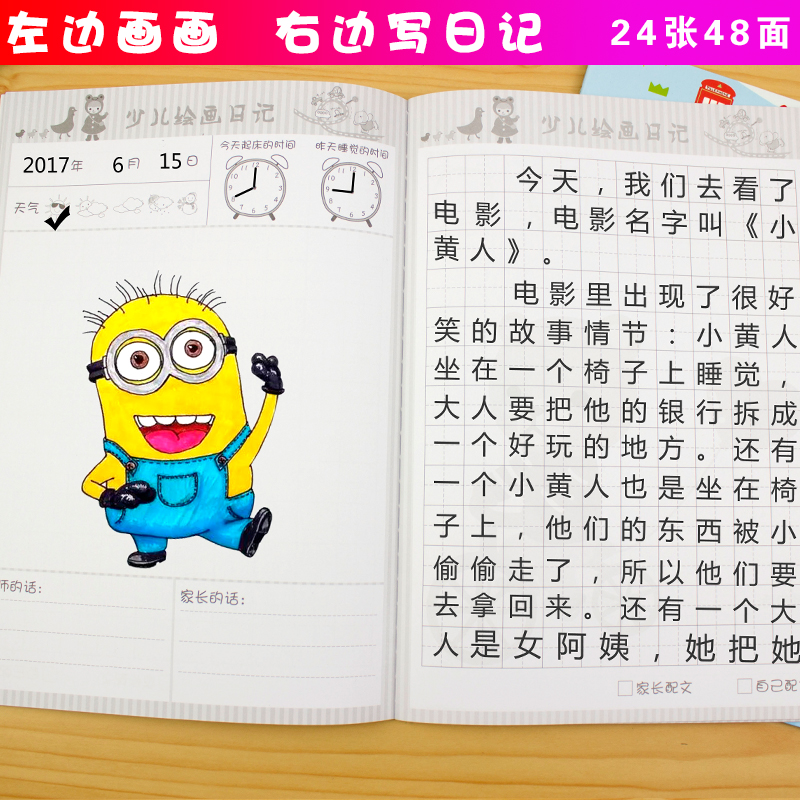 左边画画 右边写日记 24张48面
少儿绘画日记
2017年 6月 15日
今天起床的时间
昨天睡觉的时间
天气
师的话:
家长的话:
少儿绘画日记
今天，我们去看了
电影，电影名字叫《小
黄人》。
电影里出现了很好
笑的故事情节：小黄人
坐在一个椅子上睡觉，
大人要把他的银行拆成
一个好玩的地方。还有
一个小黄人也是坐在椅
子上，他们的东西被小
偷偷走了，所以他们要
去拿回来。还有一个大
人是女阿姨，她把她
家长配文
自己配